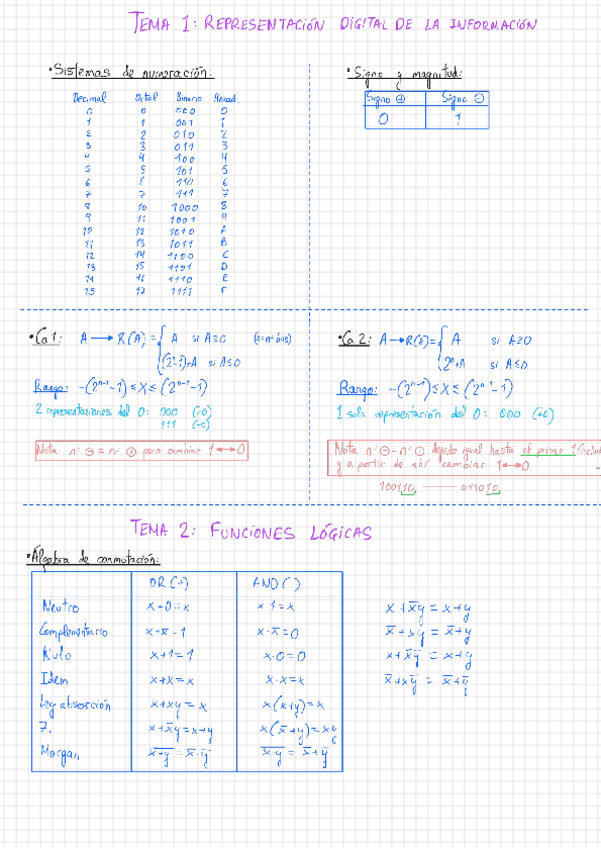 TEMA 1: REPRESENTACIÓN DIGITAL DE LA INFORMACIÓN
• Sistemas de numeración:
Decimal Octal Binario Hexad.
0 0 000 0
1 1 001 1
2 2 010 2
3 3 011 3
4 4 100 4
5 5 101 5
6 6 110 6
7 7 111 7
8 10 1000 8
9 11 1001 9
10 12 1010 A
11 13 1011 B
12 14 1100 C
13 15 1101 D
14 16 1110 E
15 17 1111 F
• Signo y magnitud:
Signo ⊕ Signo ⊖
0 1
• Ca 1: A → R(A) = { A si A≥0 (n=nº bits)
(2ⁿ-1)+A si A≤0
Rango: -(2ⁿ⁻¹-1) ≤ X ≤ (2ⁿ⁻¹-1)
2 representaciones del 0: 000 (+0)
111 (-0)
Nota: nº ⊖ = nº ⊕ pero cambiar 1↔0
• Ca 2: A → R(A) = { A si A≥0
2ⁿ+A si A≤0
Rango: -(2ⁿ⁻¹) ≤ X ≤ (2ⁿ⁻¹-1)
1 sola representación del 0: 000 (+0)
Nota: nº ⊖ = nº ⊕ dejarlo igual hasta el primer 1
y a partir de ahí cambiar 1↔0.
100110 011010
TEMA 2: FUNCIONES LÓGICAS
• Álgebra de conmutación:
OR (+) AND (·)
Neutro x+0=x x·1=x
Complementario x+x̅=1 x·x̅=0
Nulo x+1=1 x·0=0
Idem x+x=x x·x=x
Ley absorción x+xy=x x(x+y)=x
7. x+x̅y=x+y x(x̅+y)=xy
Morgan x̅+̅y̅=x̅·y̅ x̅·̅y̅=x̅+y̅
x+x̅y=x+y
x̅+xy=x̅+y
x+x̅y̅=x+y̅
x̅+xy̅=x̅+y̅